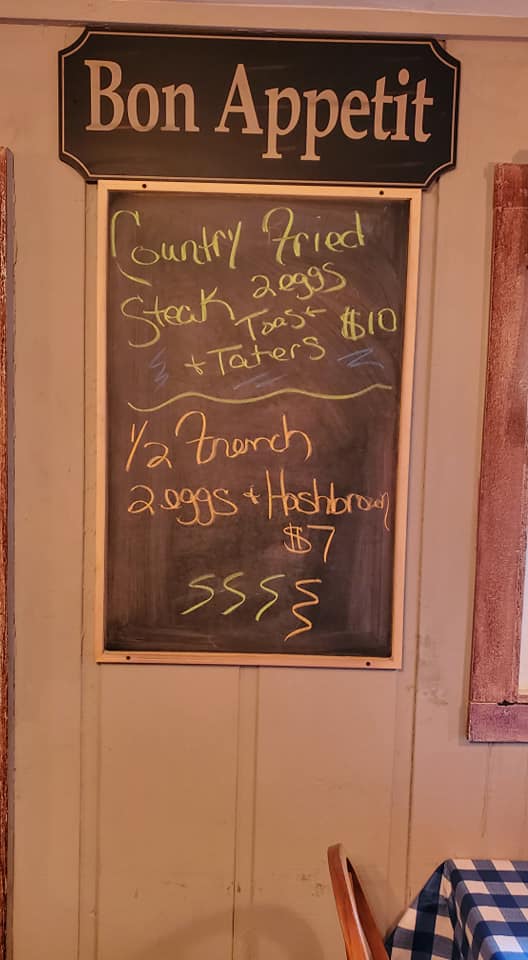 Bon Appetit
Country Fried
Steak 2 eggs
Toast $10
+ Taters
1/2 French
2 eggs + Hashbrown
$7